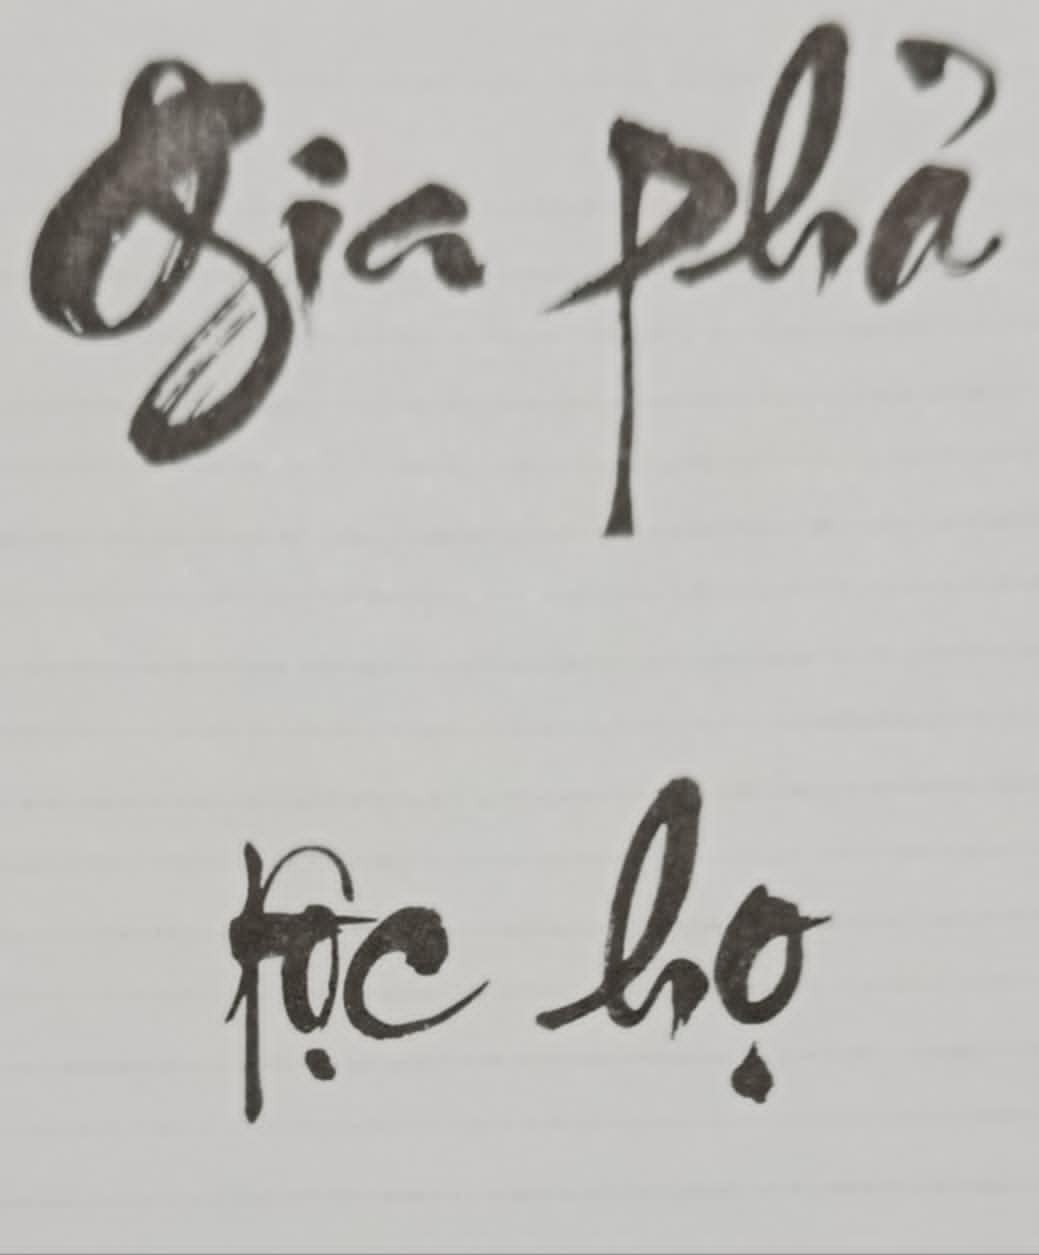 Gia phả
tộc họ